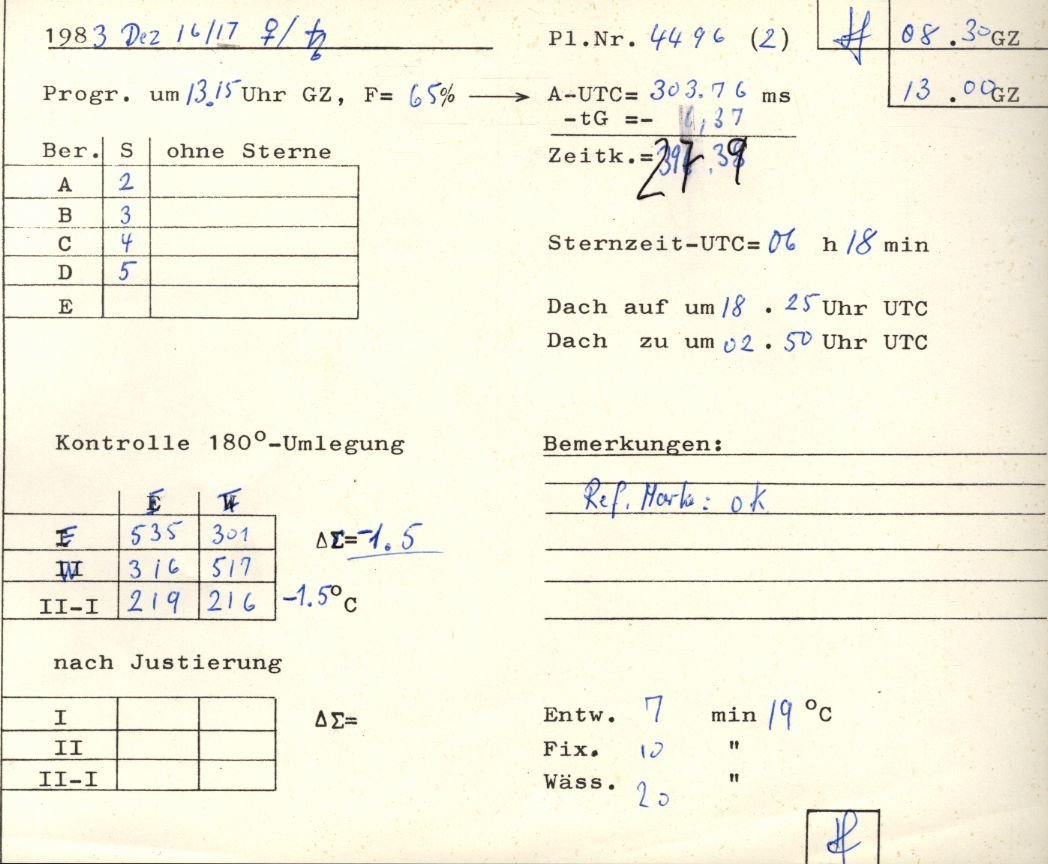 1983 Dez 16/17 ♀/♄
Pl.Nr. 4496 (2)
08.30 GZ
Progr. um 13.15 Uhr GZ, F= 65% → A-UTC= 303.76 ms
13.00 GZ
-tG =- ,37
Ber. S ohne Sterne
Zeitk.= 27.9
A 2
B 3
C 4
D 5
E
Sternzeit-UTC= 06 h 18 min
Dach auf um 18 . 25 Uhr UTC
Dach zu um 02 . 50 Uhr UTC
Kontrolle 180°-Umlegung
Bemerkungen:
E W
Ref. Marke: ok
E 535 301 ΔΣ= -1.5
W 316 517
II-I 219 216 -1.5°C
nach Justierung
I ΔΣ=
II
II-I
Entw. 7 min 19 °C
Fix. 10 "
Wäss. 20 "